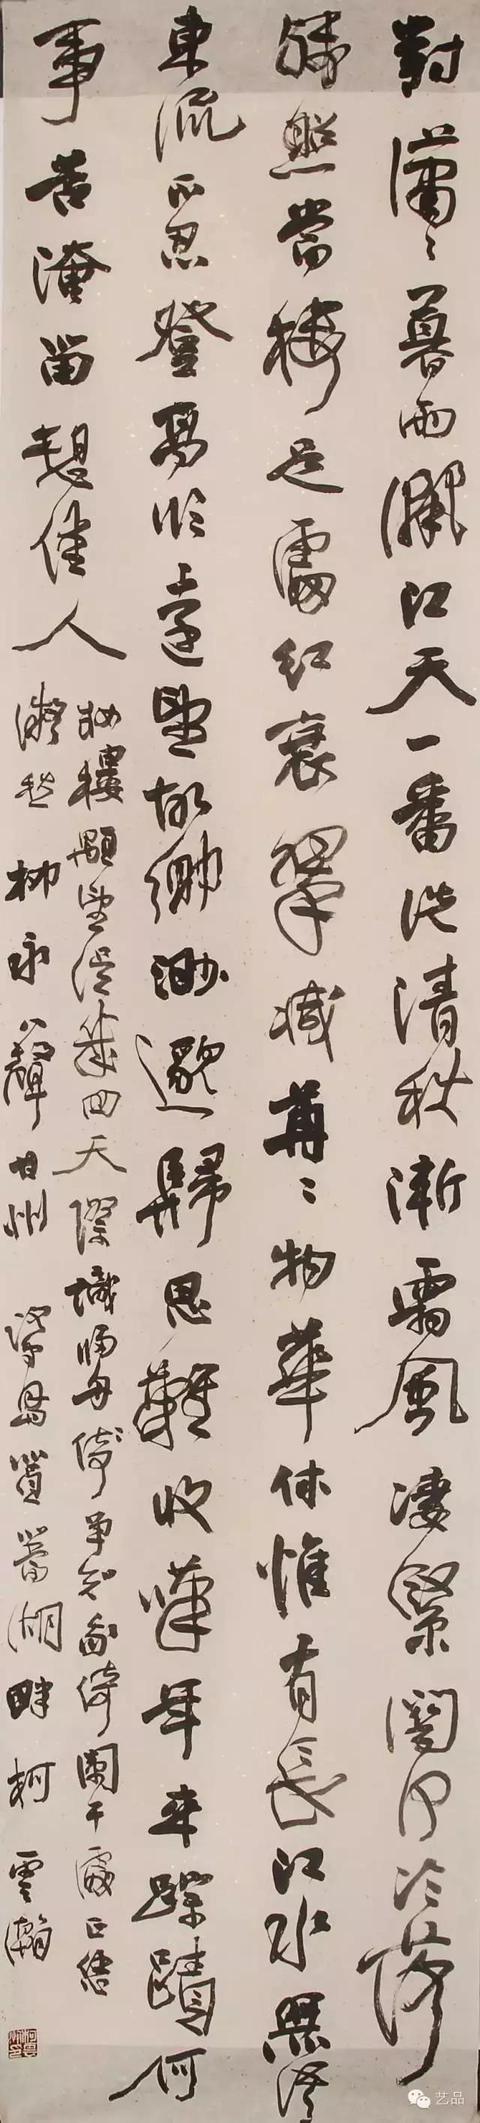 對瀟〻暮雨灑江天一番洗清秋漸霜風淒緊關河冷落
殘照當樓是處紅衰翠減苒〻物華休惟有長江水無語
東流不忍登高臨遠望故鄉渺邈歸思難收嘆年來蹤蹟何
事苦淹留想佳人
妝樓顒望誤幾回天際識歸舟爭知我倚闌干處正恁
凝愁 柳永八聲甘州 篔簹湖畔 柯雲瀚
艺品